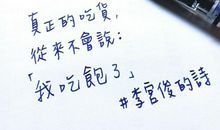 真正的吃貨,
從來不會說:
「我吃飽了」
#李宮俊的詩